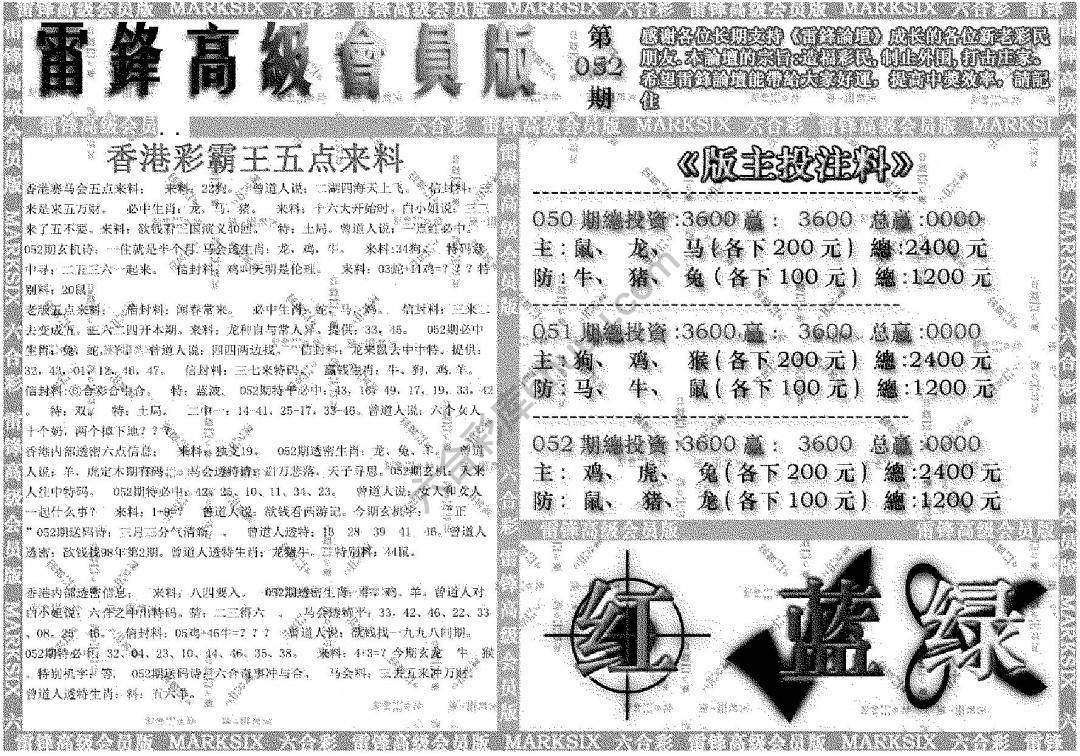 雷锋高级会员版 MARKSIX 六合彩 雷锋高级会员版 MARKSIX 六合彩 雷锋高级会员版 MARKSIX 六合彩
雷鋒高級會員版
第
052
期
感谢各位长期支持《雷鋒論壇》成长的各位新老彩民
朋友.本論壇的宗旨:造福彩民,制止外围,打击庄家.
希望雷鋒論壇能帶給大家好運, 提高中獎效率, 請記
住
雷锋高级会员版
六合彩 雷锋高级会员版 MARKSIX 六合彩 雷锋高级会员版 MARKSIX
香港彩霸王五点来料
香港赛马会五点来料: 来料:22狗。 曾道人说:二湖四海天上飞。 信封料:
来是来五万财。 必中生肖:龙、马、猪。 来料:十六大开始时。白小姐说:三二
来了五不要。来料:欲钱看三国演义40回。 特:土局。曾道人说:一点红必中。
052期玄机诗:一住就是半个月.马会透生肖:龙、鸡、牛。 来料:34狗。 特码
中寻:二五三六一起来。 信封料:鸡叫天明是伦理。 来料:03蛇+11鸡=???特
别料:20鼠
老版五点来料: 信封料:闻春常来。 必中生肖:蛇、马、鸡。 信封料:三来二
去变成五。 二六二四开本期。来料:龙种自与常人异。提供:33、45。 052期必中
生肖:兔、蛇、 曾道人说:四四两边找。 信封料:龙来鼠去中中特。提供:
32、43、01、12、46、47。 信封料:三七来特码。 赢钱生肖:牛、狗、鸡、羊。
信封料:⑥合彩合中合。 特:蓝波。 052期特平必中:43、16、49、17、19、33、42
。 特:双。 特:土局。 二中一:14-41、25-17、33-46。曾道人说:六个女人
十个奶,两个掉下地???
香港内部透密六点信息: 来料:独支19。 052期透密生肖:龙、兔、羊。 曾道
人说:羊、虎定本期有码。 马会透特诗: 万悲落、天子寻恩。052期玄机:人来
人往中特码。 052期特必中:42、25、10、11、34、23。 曾道人说:女人和女人
一起什么事? 来料:1-9=? 曾道人说:欲钱看西游记。今期玄机字: “正
”052期送码诗:三月三分气清新。 曾道人透特:18 28 39 41 46。曾道人
透密:欲钱找98年第2期。曾道人透特生肖:龙猪牛。 特别料:44鼠。
香港内部透密信息: 来料:八四要入。 052期透密生肖: 鸡、羊。曾道人对
白小姐说:六合之中出特码。猜:二三得六 。 马会透特平:33、42、46、22、33
、08、25 46。 信封料:05鸡+46牛=??? 曾道人说:欲钱找一九九八间期。
052期特必中:32、04、23、10、44、46、35、38。 来料:4+3=?今期玄龙 牛、猴
。特别机字:等, 052期送码诗:六合奇事冲与合。 马会料:三去五来冲万财。
曾道人透特生肖:料:五六举。
《版主投注料》
050 期總投資:3600 赢: 3600 总赢:0000
主:鼠、 龙、 马(各下 200 元) 總:2400 元
防:牛、 猪、 兔(各下 100 元) 總:1200 元
051 期總投資:3600 赢: 3600 总赢:0000
主:狗、 鸡、 猴(各下 200 元) 總:2400 元
防:马、 牛、 鼠(各下 100 元) 總:1200 元
052 期總投資:3600 赢: 3600 总赢:0000
主:鸡、 虎、 兔(各下 200 元) 總:2400 元
防:鼠、 猪、 龙(各下 100 元) 總:1200 元
雷锋高级会员版
雷锋高级会员版
红 蓝 绿
雷锋高级会员版 MARKSIX 六合彩 雷锋高级会员版 MARKSIX 六合彩 雷锋高级会员版 MARKSIX 六合彩 雷锋